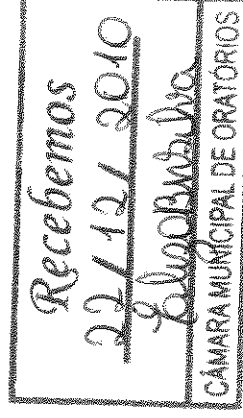 Recebemos
22/12/2010
CÂMARA MUNICIPAL DE ORATÓRIOS